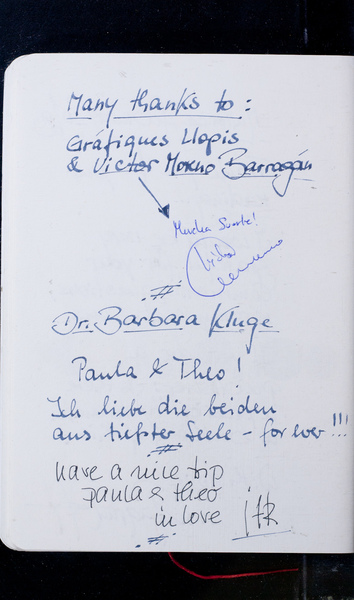 Many thanks to:
Gráfiques Llopis
& Victor Moreno Barragán
Mucha Suerte!
#
Dr. Barbara Kluge
Paula & Theo!
Ich liebe die beiden
aus tiefster Seele - for ever!!!
#
have a nice trip
paula & theo
in love
#